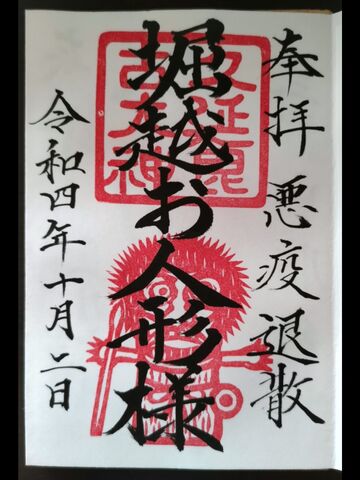 奉拝 悪疫退散
堀越お人形様
令和四年十月二日